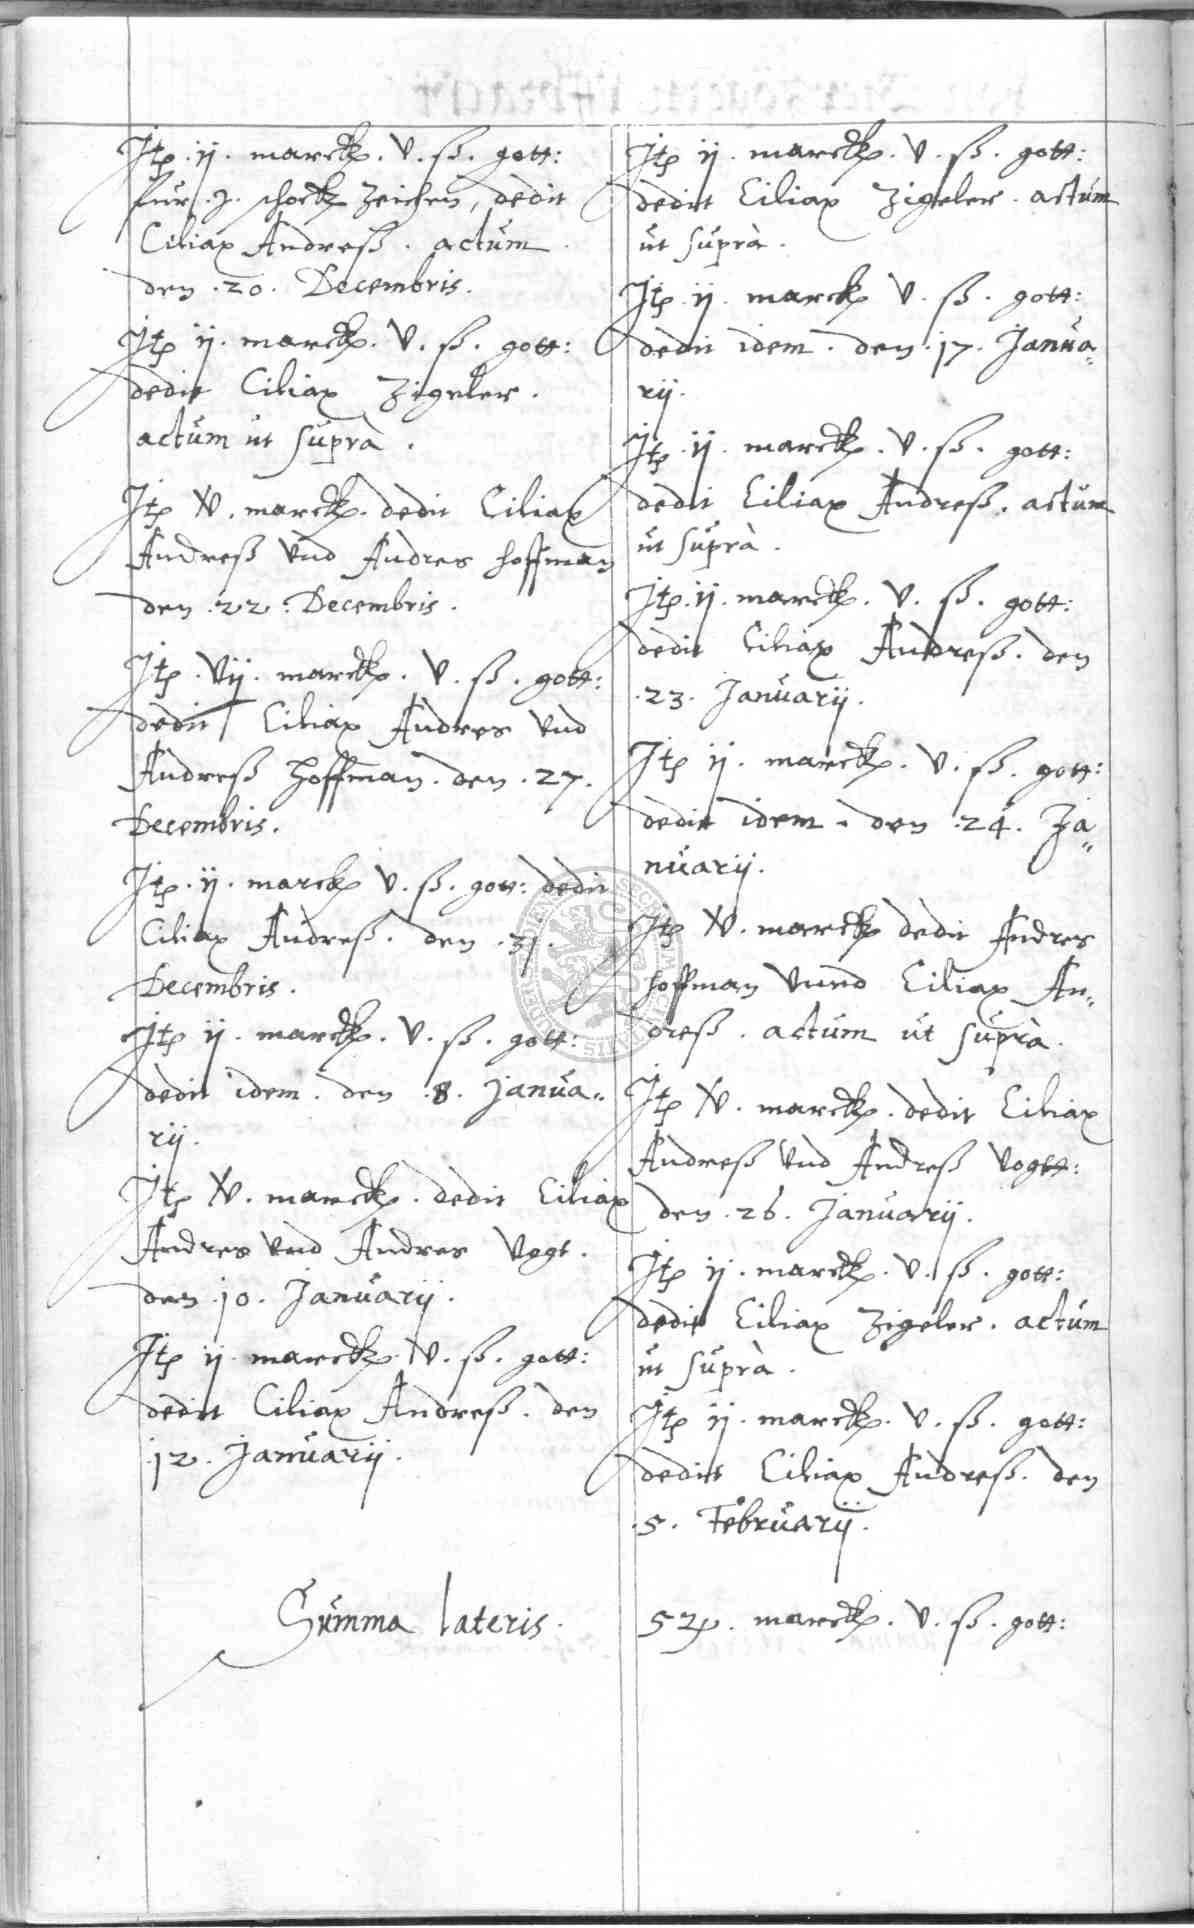 Itꝫ .ij. marckꝫ. v. ß. gott:
für .j. schockꝫ Zeichen, dedit
Ciliax Andreß. actum
den .20. Decembris.
Itꝫ ij. marckꝫ. v. ß. gott:
dedit Ciliax Zigeler.
actum ut suprà.
Itꝫ v. marckꝫ. dedit Ciliax
Andreß vnd Andres Hoffman
den .22. Decembris.
Itꝫ .vij. marckꝫ. v. ß. gott:
dedit Ciliax Andres vnd
Andreß Hoffman. den .27.
Decembris.
Itꝫ .ij. marckꝫ v. ß. gott: dedit
Ciliax Andreß. den .31.
Decembris.
Itꝫ ij. marckꝫ. v. ß. gott:
dedit idem. den .8. Janua„
rij.
Itꝫ v. marckꝫ. dedit Ciliax
Andres vnd Andres Vogt.
den .10. Januarij.
Itꝫ ij marckꝫ. v. ß. gott:
dedit Ciliax Andreß. den
.12. Januarij.
Itꝫ ij. marckꝫ. v. ß. gott:
dedit Ciliax Zigeler. actum
ut suprà.
Itꝫ .ij. marckꝫ v. ß. gott:
dedit idem. den .17. Janua„
rij.
Itꝫ .ij. marckꝫ. v. ß. gott:
dedit Ciliax Andreß. actum
ut suprà.
Itꝫ .ij. marckꝫ. v. ß. gott:
dedit Ciliax Andreß. den
.23. Januarij.
Itꝫ ij. marckꝫ. v. ß. gott:
dedit idem. den .24. Ja„
nuarij.
Itꝫ v. marckꝫ dedit Andres
Hoffman vnnd Ciliax An„
dreß. actum ut suprà.
Itꝫ v. marckꝫ. dedit Ciliax
Andreß vnd Andreß Vogtt:
den .26. Januarij.
Itꝫ ij. marckꝫ. v. ß. gott:
dedit Ciliax Zigeler. actum
ut suprà.
Itꝫ ij. marckꝫ. v. ß. gott:
dedit Ciliax Andreß. den
.5. Februarij.
Summa lateris. marckꝫ. v. ß. gott: